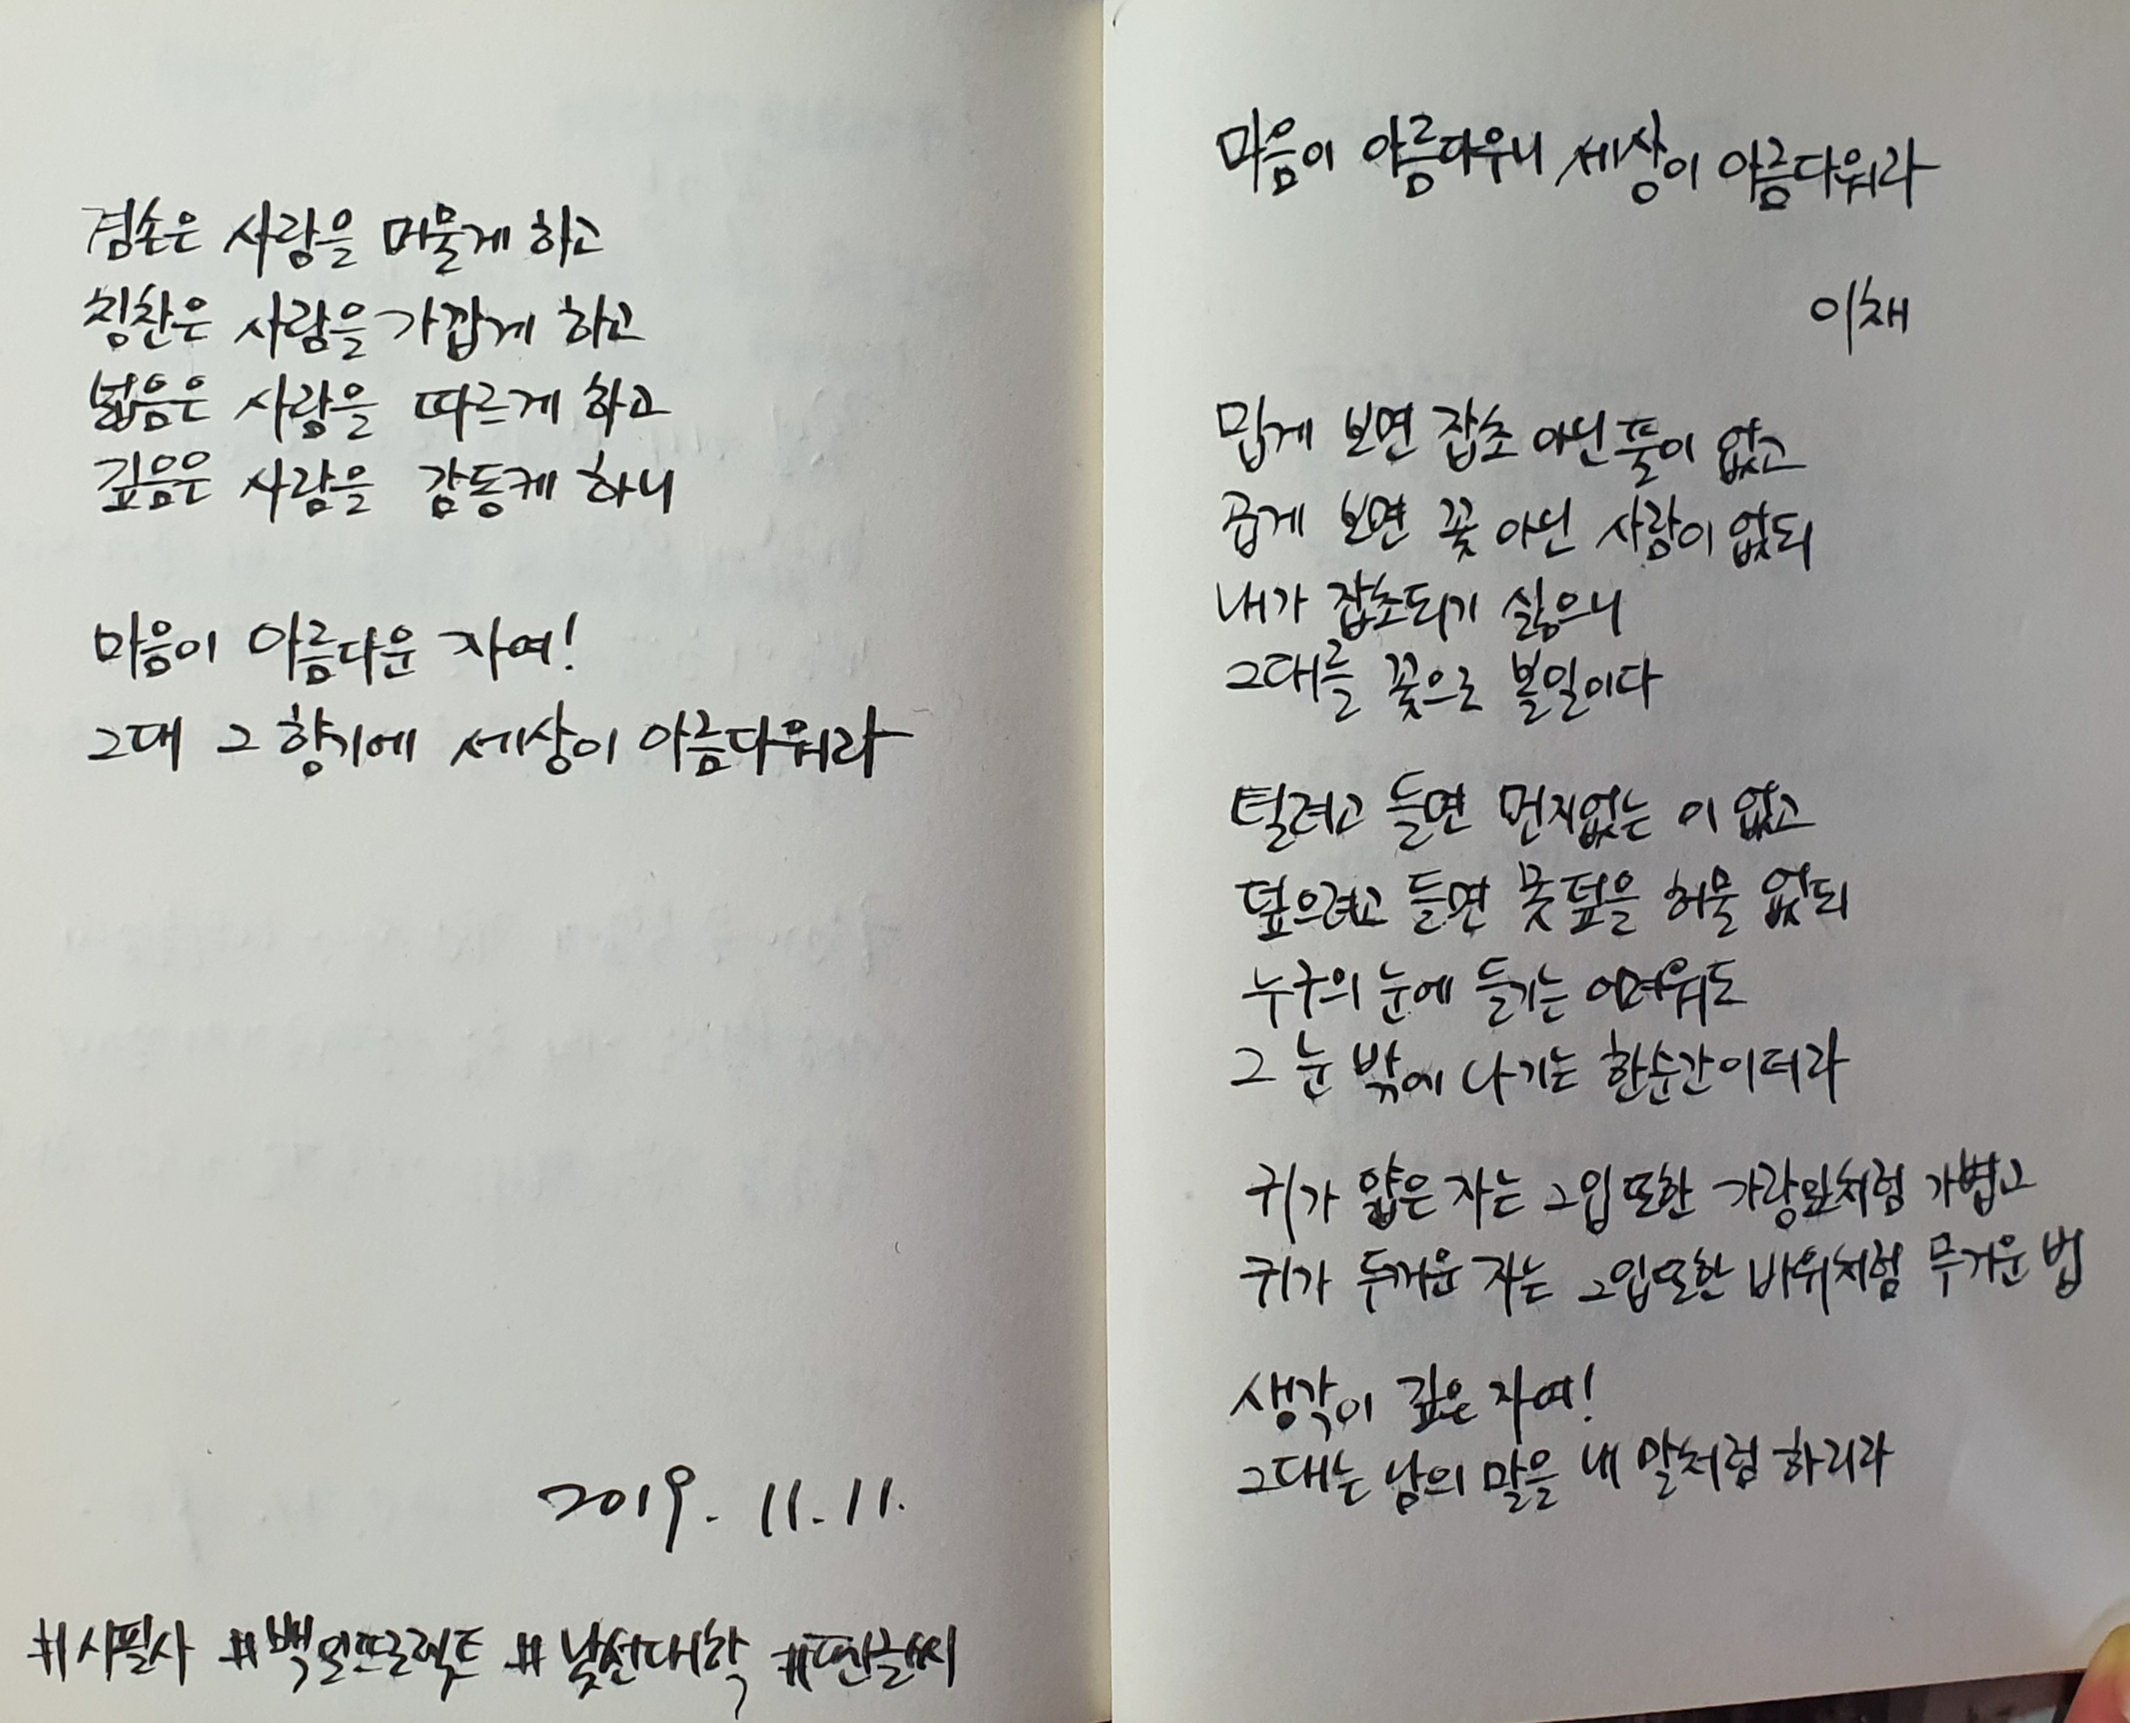 마음이 아름다우니 세상이 아름다워라
이채
밉게 보면 잡초 아닌 풀이 없고
곱게 보면 꽃 아닌 사람이 없되
내가 잡초되기 싫으니
그대를 꽃으로 볼일이다
털려고 들면 먼지없는 이 없고
덮으려고 들면 못덮을 허물 없되
누구의 눈에 들기는 어려워도
그 눈 밖에 나기는 한순간이더라
귀가 얇은 자는 그입 또한 가랑잎처럼 가볍고
귀가 두꺼운 자는 그입또한 바위처럼 무거운 법
생각이 깊은 자여!
그대는 남의 말을 내 말처럼 하리라
겸손은 사람을 머물게 하고
칭찬은 사람을 가깝게 하고
넓음은 사람을 따르게 하고
깊음은 사람을 감동케 하니
마음이 아름다운 자여!
그대 그 향기에 세상이 아름다워라
2019. 11. 11.
#시필사 #백일프로젝트 #낯선대학 #펜글씨